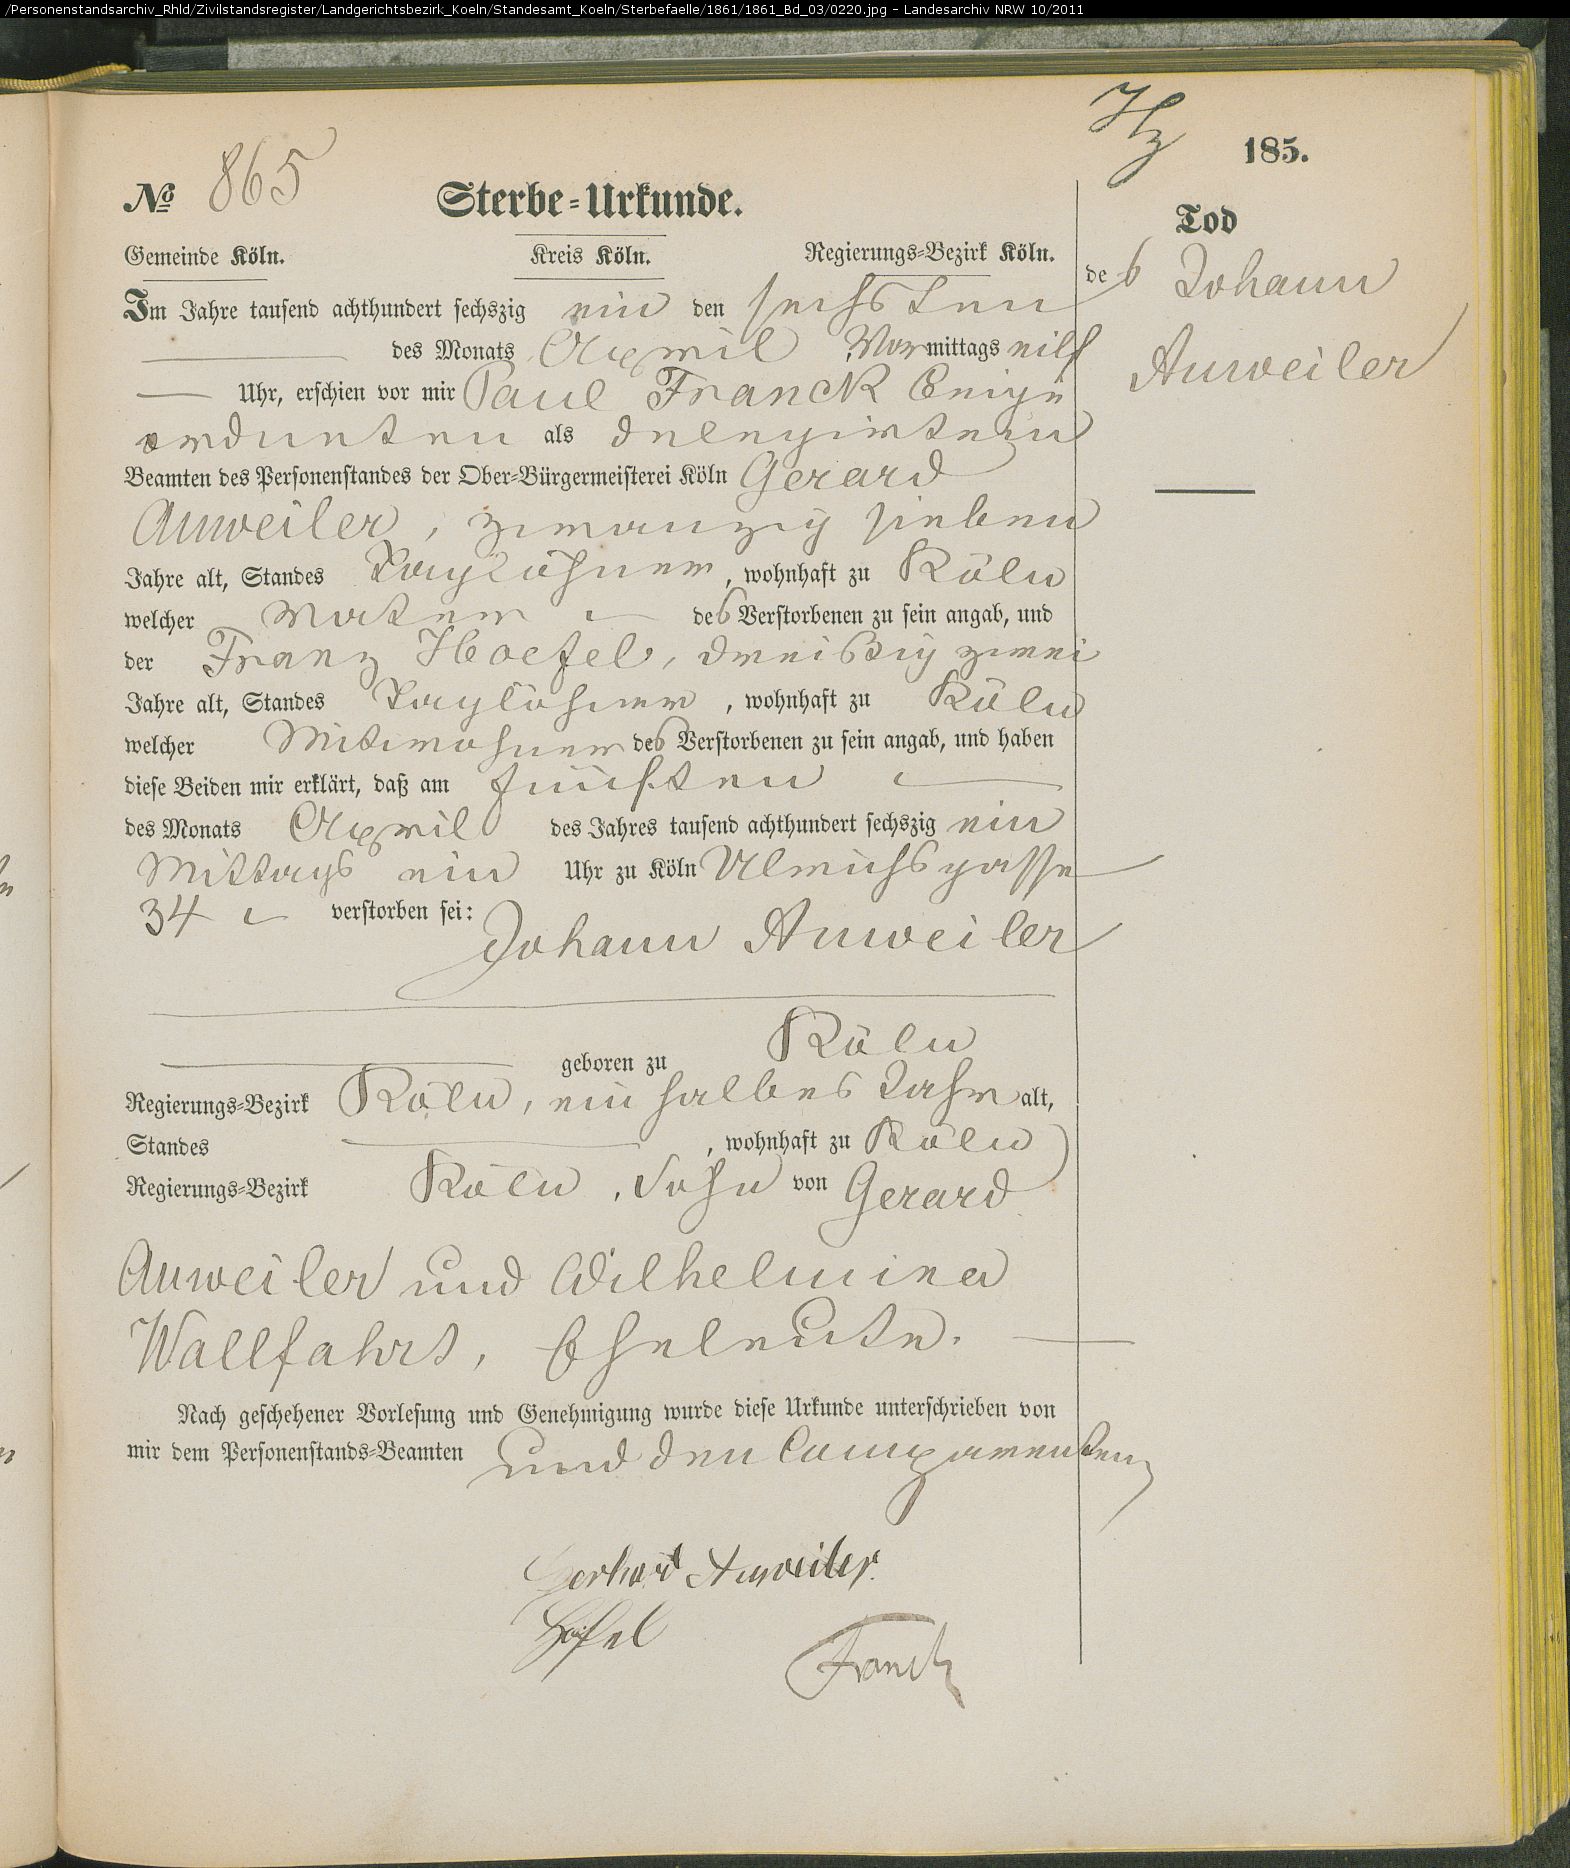 /Personenstandsarchiv_Rhld/Zivilstandsregister/Landgerichtsbezirk_Koeln/Standesamt_Koeln/Sterbefaelle/1861/1861_Bd_03/0220.jpg - Landesarchiv NRW 10/2011
185.
No 865
Sterbe-Urkunde.
Gemeinde Köln. Kreis Köln. Regierungs-Bezirk Köln.
Tod
des Johann
Auweiler
Im Jahre tausend achthundert sechszig ein den sechsten
des Monats April Vormittags eilf
Uhr, erschien vor mir Paul Franck Beige
ordneten als delegirtem
Beamten des Personenstandes der Ober-Bürgermeisterei Köln Gerard
Auweiler, zwanzig sieben
Jahre alt, Standes Taglöhner, wohnhaft zu Köln
welcher Vater des Verstorbenen zu sein angab, und
der Franz Hoefel, dreißig zwei
Jahre alt, Standes Taglöhner, wohnhaft zu Köln
welcher Mitwohner des Verstorbenen zu sein angab, und haben
diese Beiden mir erklärt, daß am fünften
des Monats April des Jahres tausend achthundert sechszig ein
Mittags ein Uhr zu Köln Ulrichsgasse
34 verstorben sei:
Johann Auweiler
geboren zu Köln
Regierungs-Bezirk Köln, ein halbes Jahr alt,
Standes , wohnhaft zu Köln
Regierungs-Bezirk Köln, Sohn von Gerard
Auweiler und Wilhelmina
Wallfahrt, Eheleute.
Nach geschehener Vorlesung und Genehmigung wurde diese Urkunde unterschrieben von
mir dem Personenstands-Beamten und den Comparenten
Gerhard Auweiler
Höfel
Franck